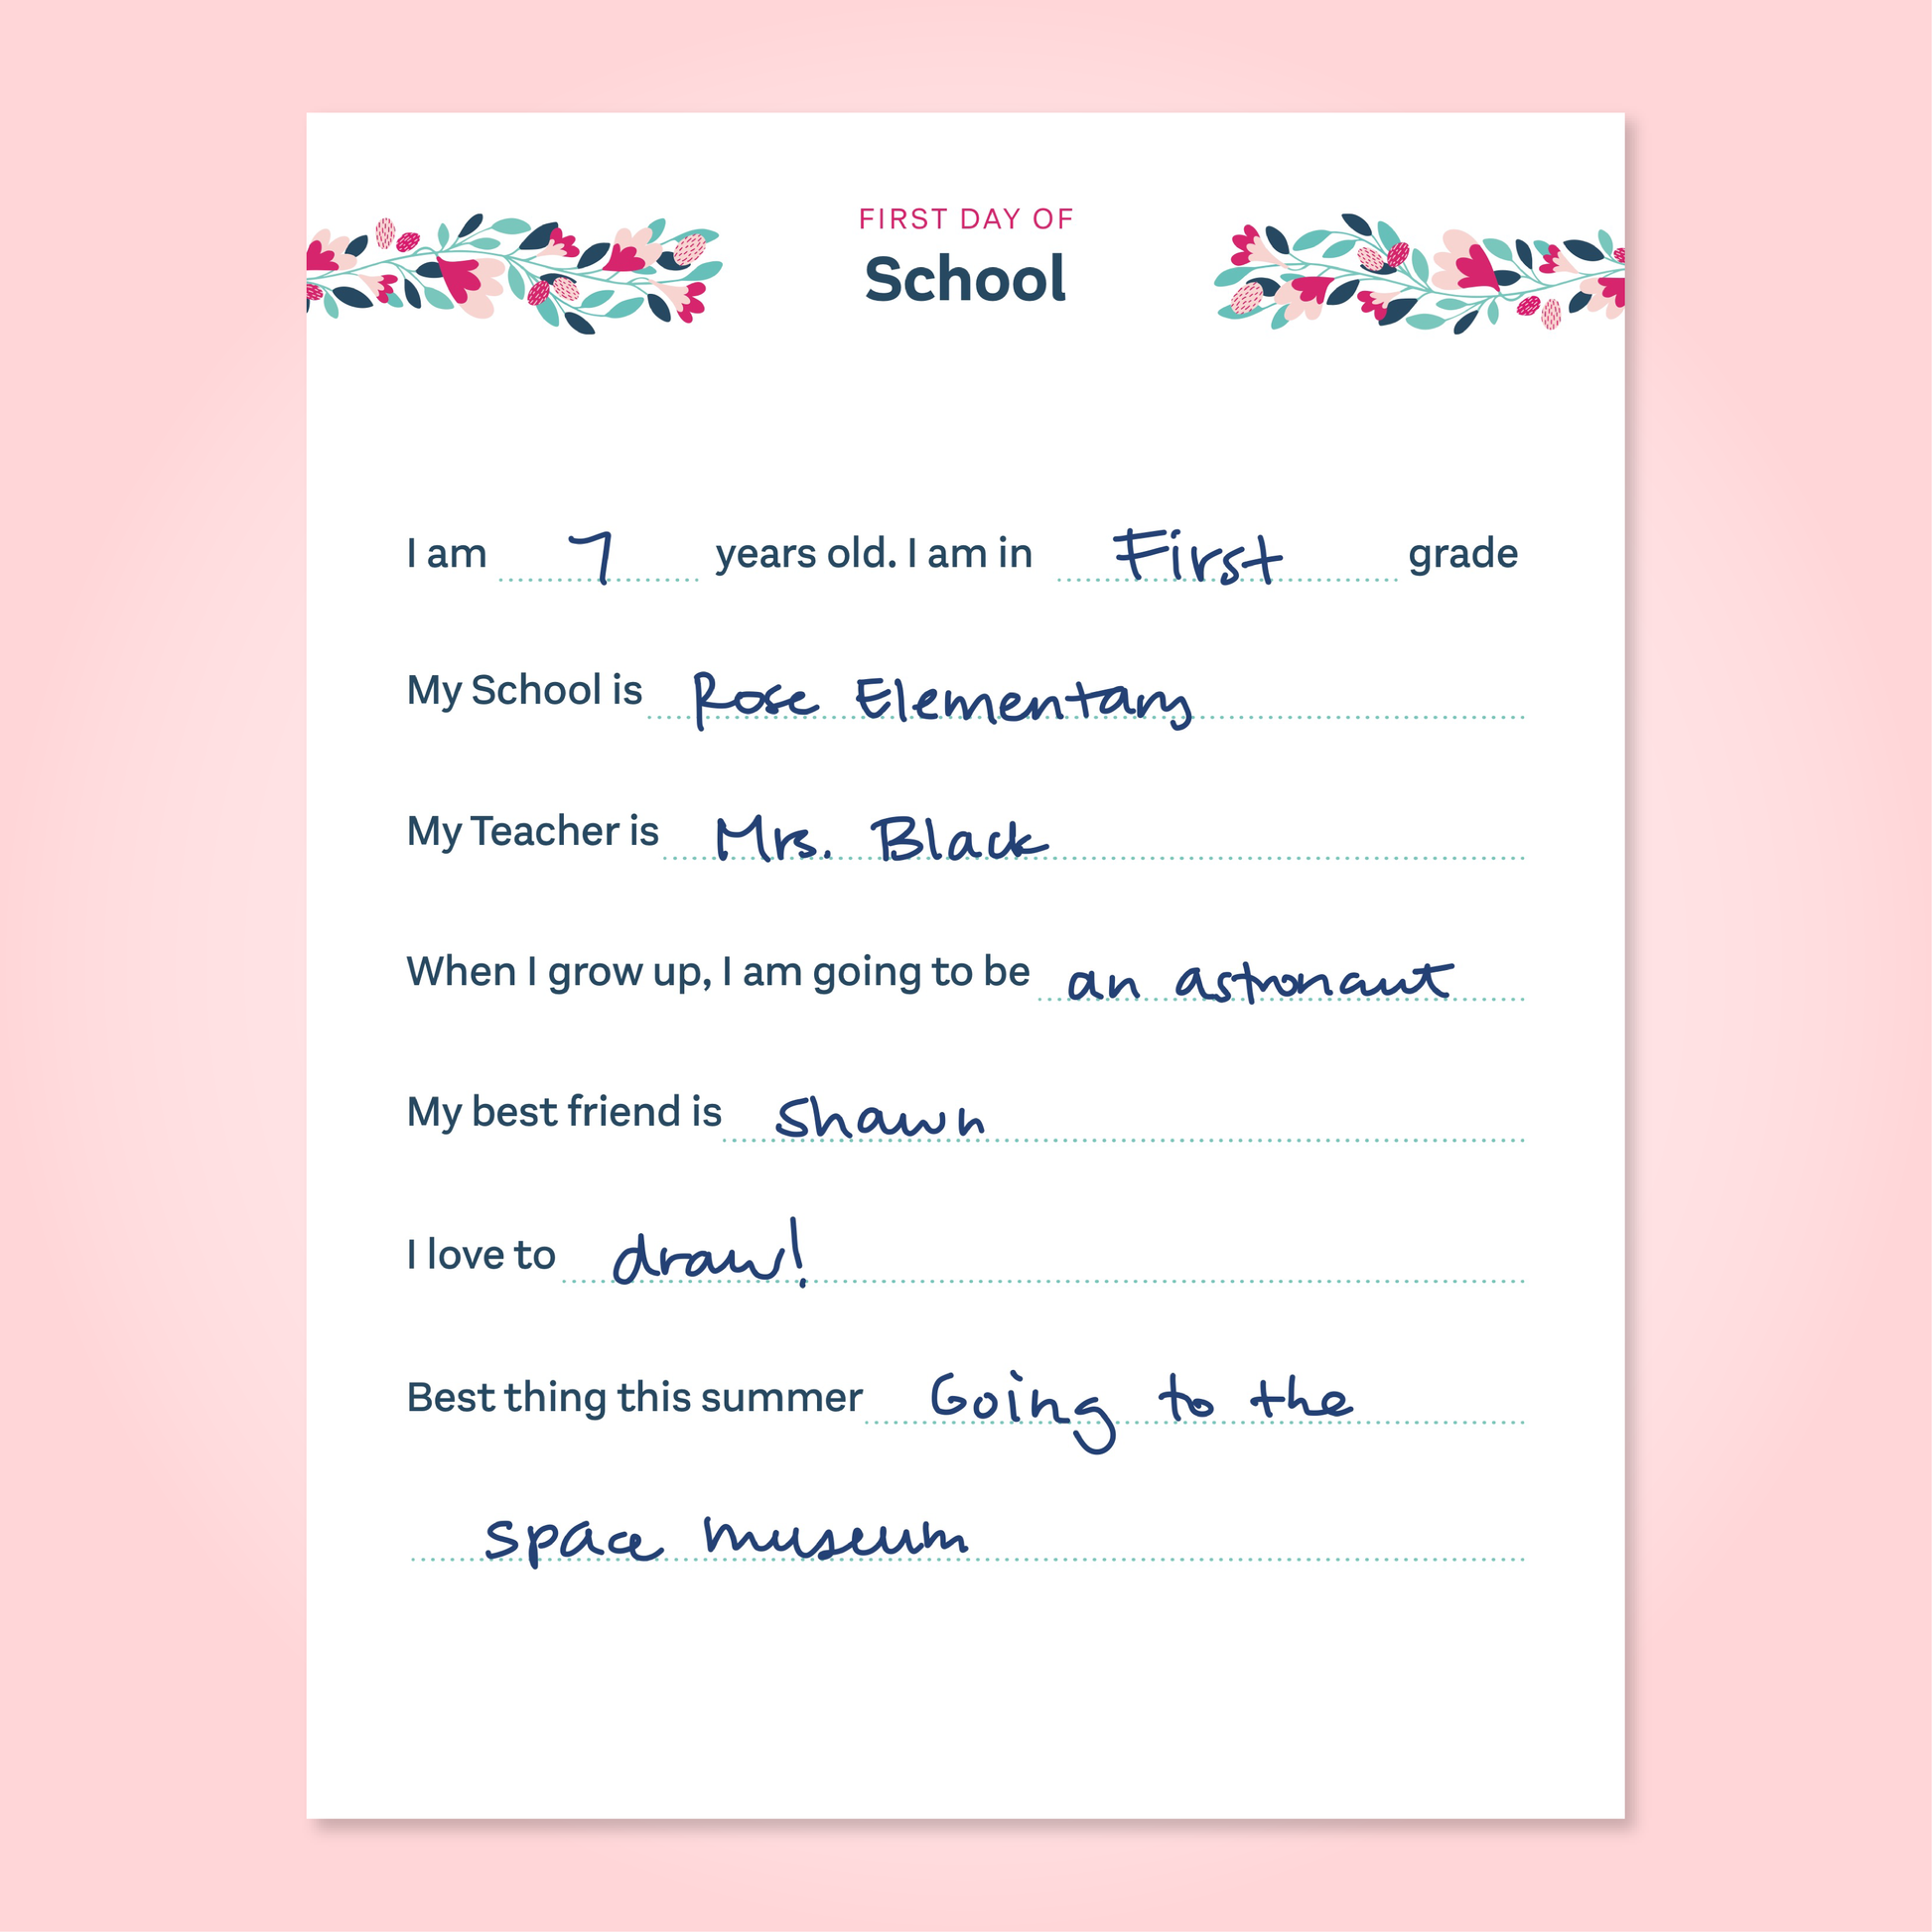 FIRST DAY OF
School
I am 7 years old. I am in First grade
My School is Rose Elementary
My Teacher is Mrs. Black
When I grow up, I am going to be an astronaut
My best friend is Shawn
I love to draw!
Best thing this summer Going to the
space museum